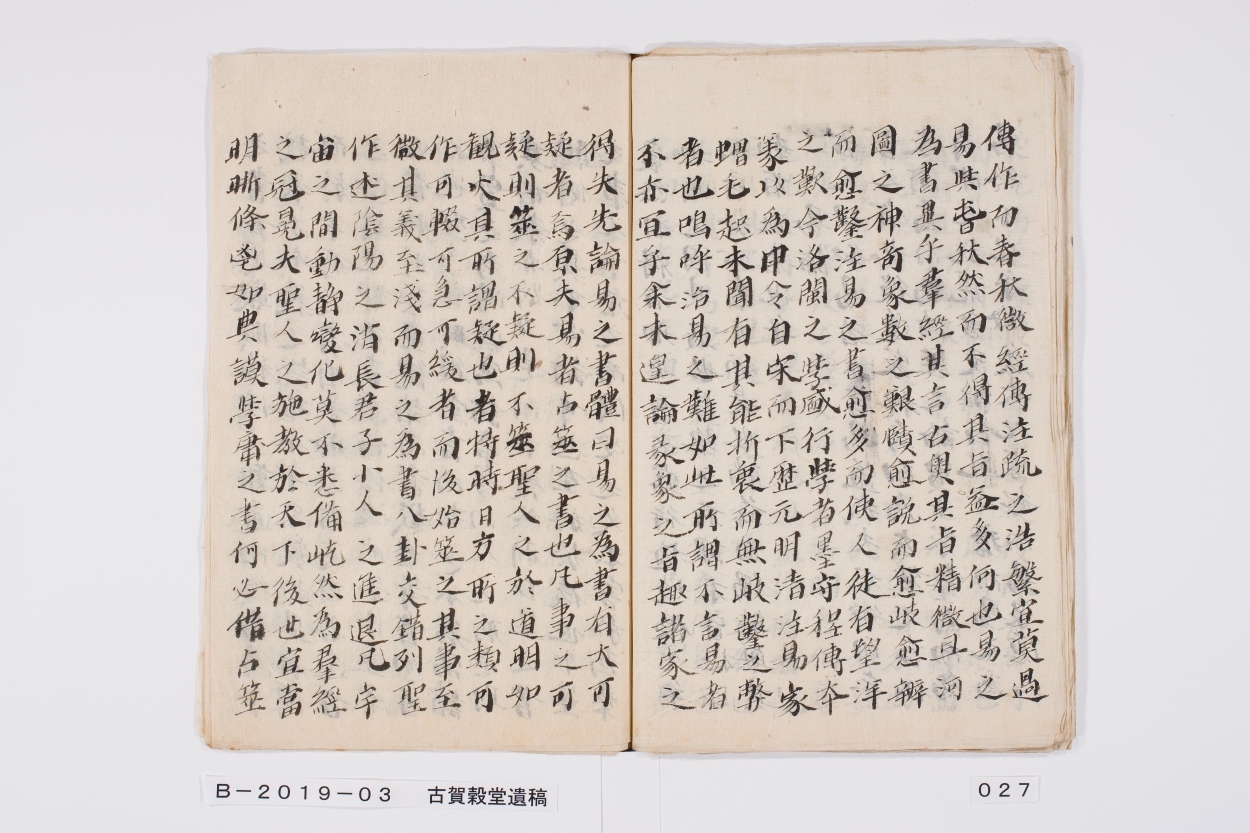 傳作而春秋微經傳注疏之浩繁宜莫過
易與春秋然而不得其旨益多何也易之
為書異乎羣經其言古奧其旨精微且河
圖之神奇象數之艱賾愈說而愈岐愈辨
而愈鑿注易之書愈多而使人徒有望洋
之歎今洛閩之學盛行學者墨守程傳本
義以為甲令自宋而下歷元明淸注易家
蝟毛起未聞有其能折衷而無岐鑿之弊
者也嗚呼治易之難如此所謂不言易者
不亦宜乎余未遑論彖象之旨趣諸家之
得失先論易之書體曰易之為書有大可
疑者焉原夫易者占筮之書也凡事之可
疑則筮之不疑則不筮聖人之於道明如
觀火其所謂疑也者特時日方所之類可
作可輟可急可緩者而後始筮之其事至
微其義至淺而易之為書八卦交錯列聖
作述陰陽之消長君子小人之進退凡宇
宙之間動靜變化莫不悉備屹然為羣經
之冠冕夫聖人之施教於天下後世宜當
明晰條鬯如典謨學庸之書何必借占筮
B－2019－03　古賀穀堂遺稿
027